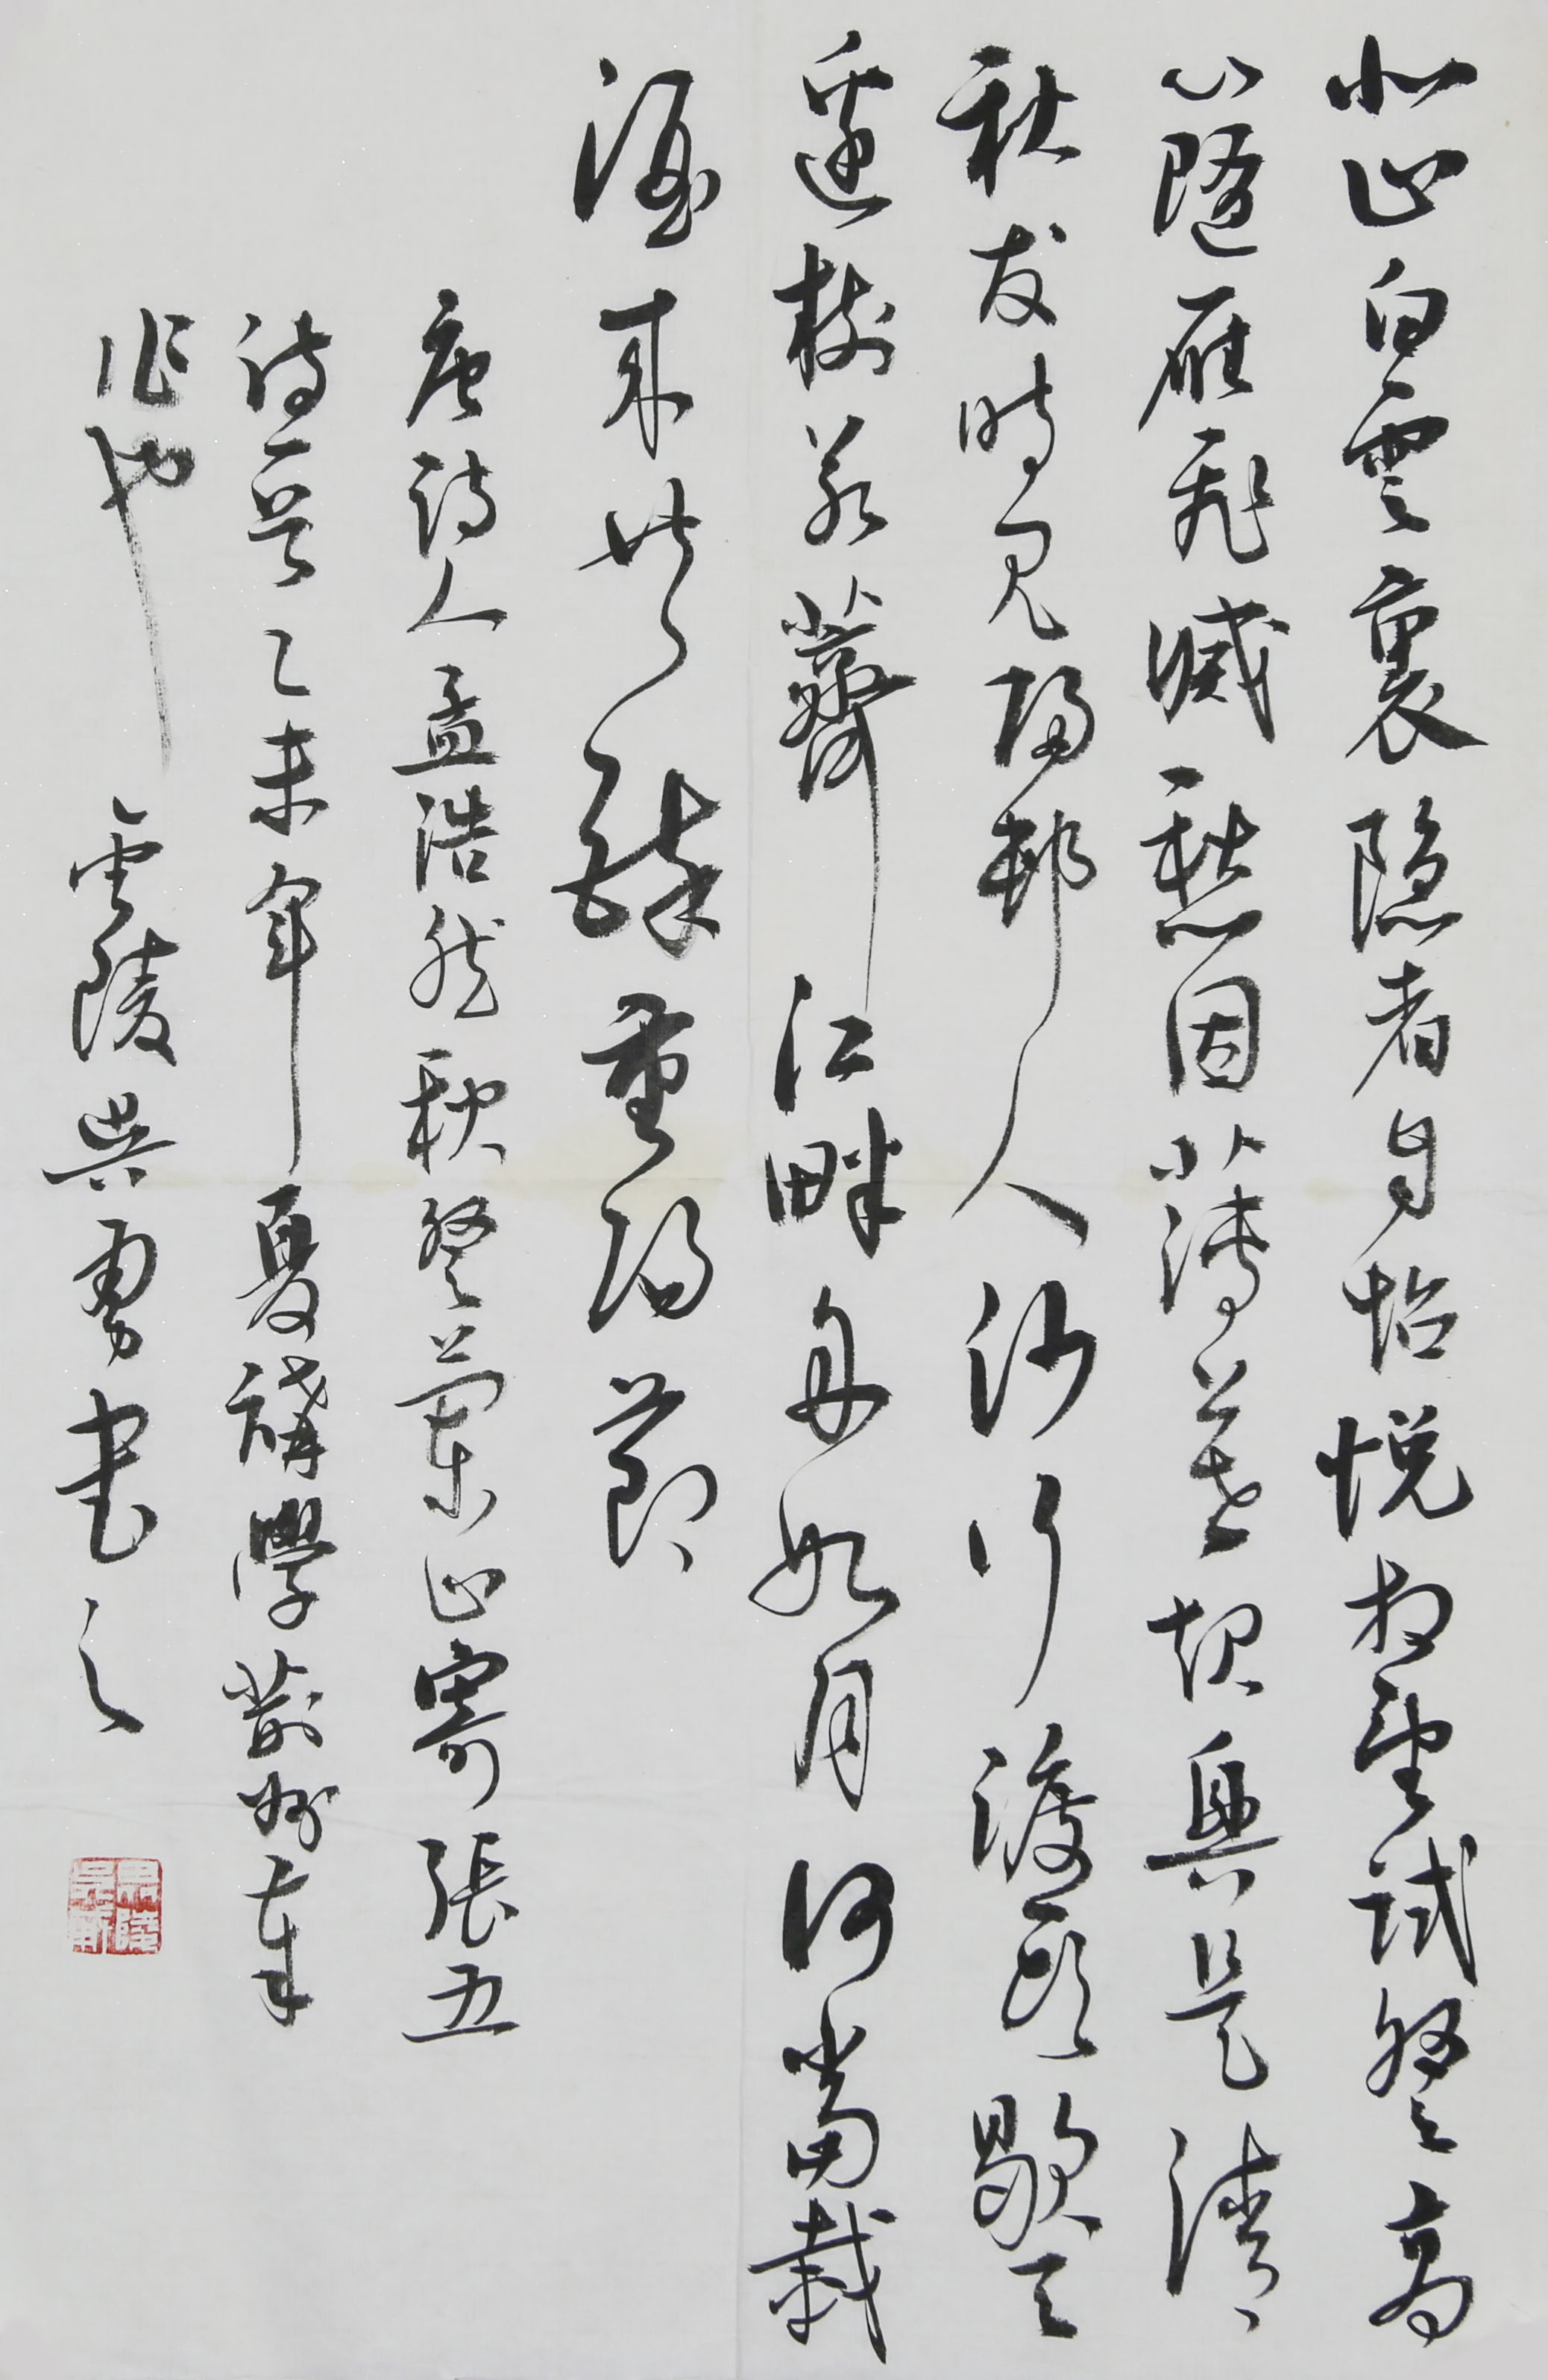 北山白雲裏隐者自怡悦相望試登高
心隨雁飛滅愁因薄暮起興是清
秋发時見歸邨人沙行渡頭歇天
邊樹若薺江畔舟如月何當載
酒來共醉重陽節
唐詩人孟浩然秋登蘭山寄張五
詩一首乙未年夏講學蘄州
作也雲陵吳勇書之